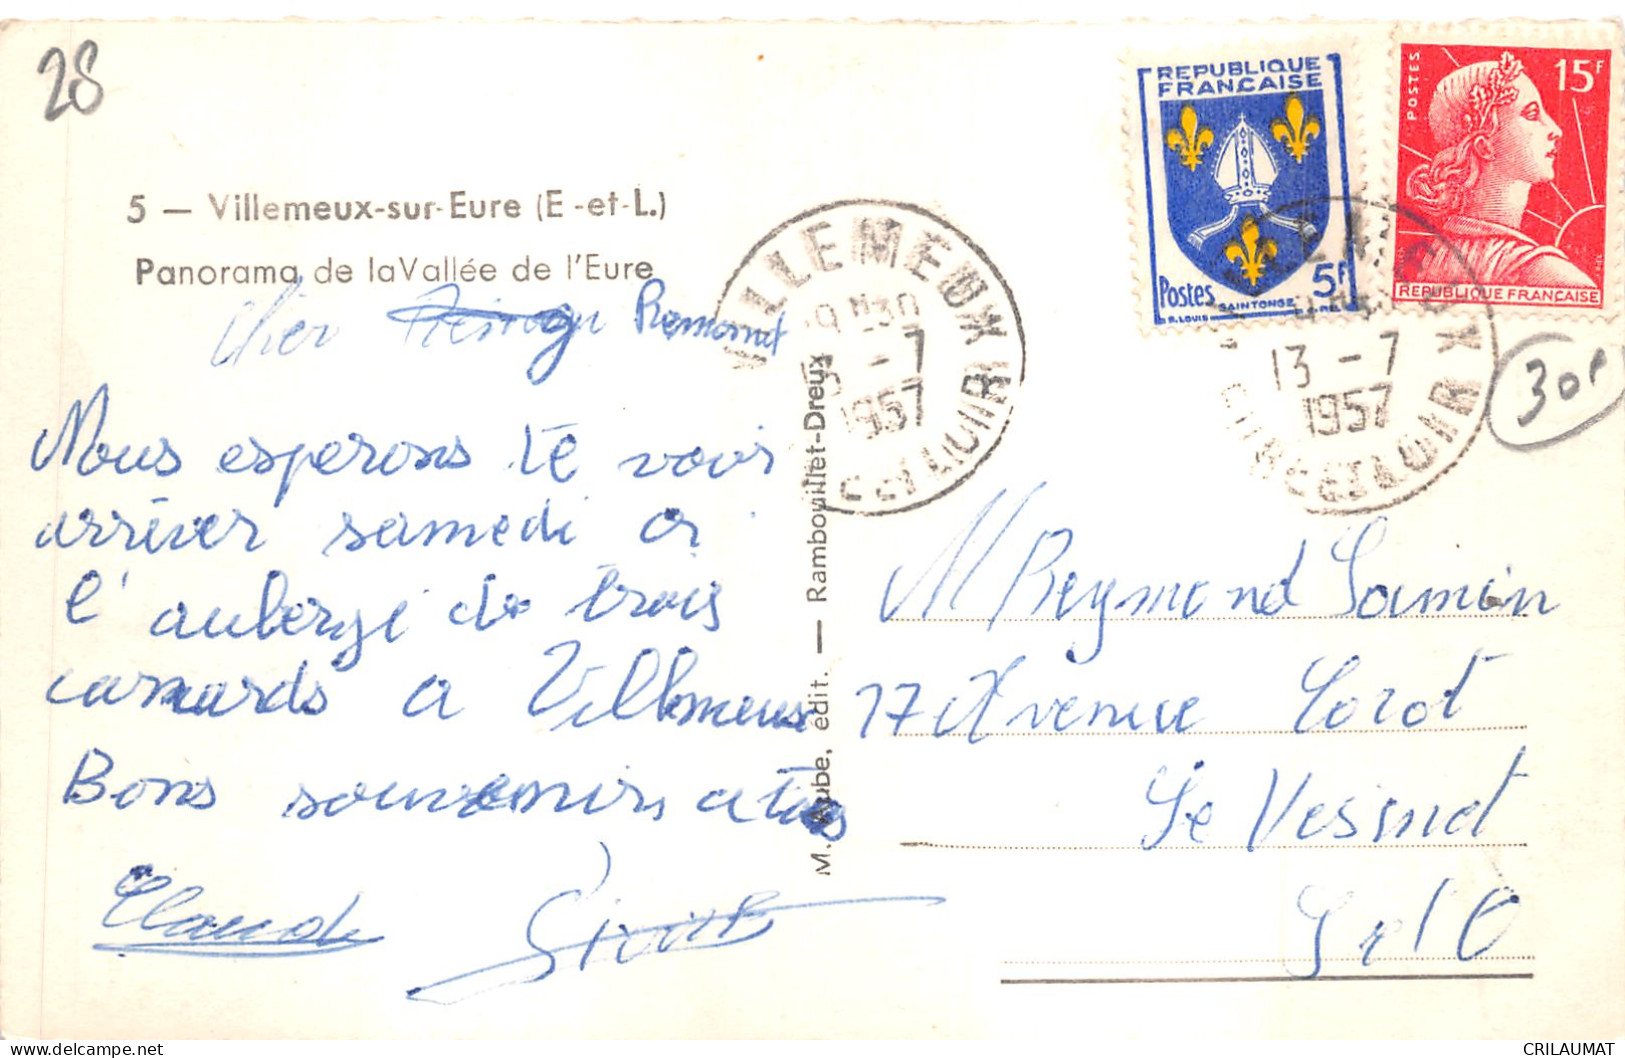 28
5 — Villemeux-sur-Eure (E-et-L.)
Panorama de la Vallée de l'Eure
Cher
Nous esperons te voir
arriver samedi a
l'auberge de trois
canards a Villemeux
Bons souvenirs a tous
Claude
M. Aube, édit. — Rambouillet-Dreux
REPUBLIQUE
FRANCAISE
Postes 5F
SAINTONGE
R. LOUIS
POSTES
15F
REPUBLIQUE FRANCAISE
VILLEMEUX
-7
1957
EURE ET LOIR
13-7
1957
30F
M Reymond Samion
77 Avenue Corot
Le Vesinet
S et O
Delcampe.net
CRILAUMAT